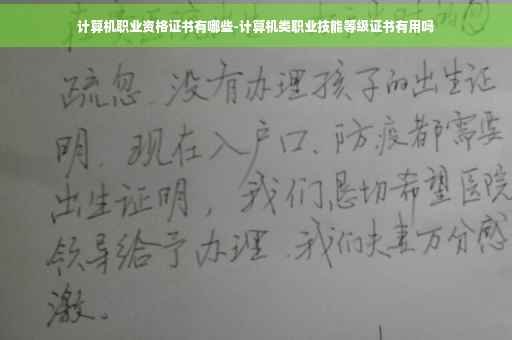 计算机职业资格证书有哪些-计算机类职业技能等级证书有用吗
疏忽、没有办理孩子的出生证
明、现在入户口、防疫都需要
出生证明，我们恳切希望医院
领导给予办理、我们夫妻万分感
激。